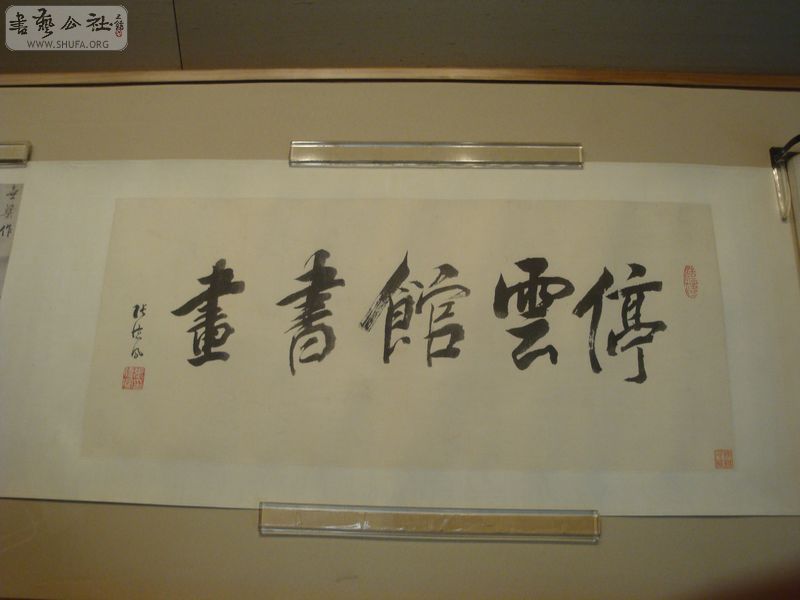 書藝公社
WWW.SHUFA.ORG
停雲館書畫
作